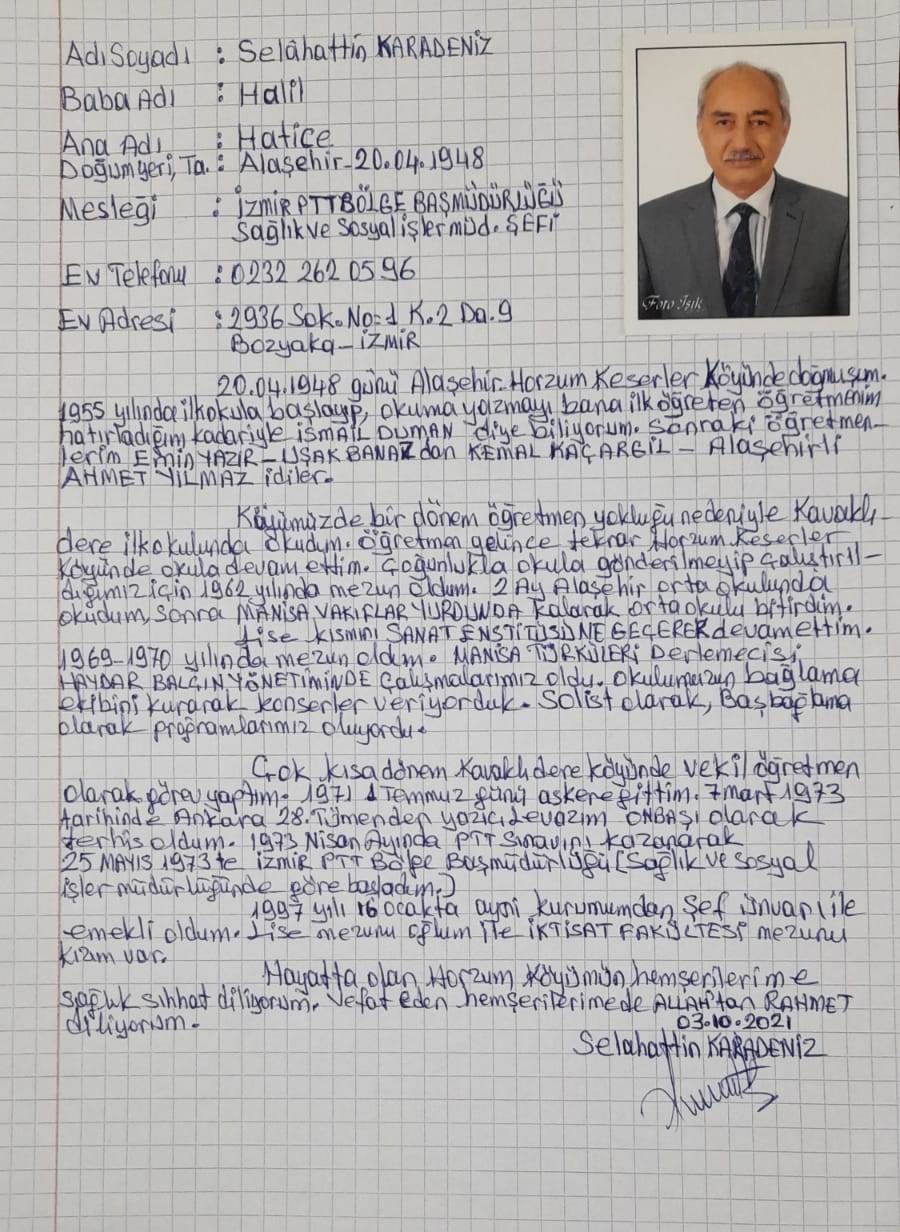 Adı Soyadı : Selâhattin KARADENİZ
Baba Adı : Halil
Ana Adı : Hatice
Doğum yeri, Ta. : Alaşehir-20.04.1948
Mesleği : İzmir PTT BÖLGE BAŞMÜDÜRLÜĞÜ
Sağlık ve Sosyal işler müd. ŞEFİ
Ev Telefonu : 0232 262 05 96
Ev Adresi : 2936 Sok. No=1 K.2 Da.9
Bozyaka-İZMİR
Foto Işık
20.04.1948 günü Alaşehir-Horzum Keserler Köyünde doğmuşum.
1955 yılında ilkokula başlayıp, okuma yazmayı bana ilk öğreten öğretmenim
hatırladığım kadariyle İSMAİL DUMAN diye biliyorum. Sonraki öğretmen-
lerim Emin YAZIR-UŞAK BANAZ dan KEMAL KAÇARGİL - Alaşehirli
AHMET YILMAZ idiler.
Köyümüzde bir dönem öğretmen yokluğu nedeniyle Kavaklı-
dere ilkokulunda okudum. Öğretmen gelince tekrar Horzum Keserler
Köyünde okula devam ettim. Çoğunlukla okula gönderilmeyip çalıştırıl-
dığımız için 1962 yılında mezun oldum. 2 Ay Alaşehir orta okulunda
okudum, sonra MANİSA VAKIFLAR YURDUNDA Kalarak ortaokulu bitirdim.
Lise kısmını SANAT ENSTİTÜSÜNE GEÇEREK devam ettim.
1969-1970 yılında mezun oldum. MANİSA TÜRKÜLERİ Derlemecisi
HAYDAR BALÇIN YÖNETİMİNDE Çalışmalarımız oldu. Okulumuzun bağlama
ekibini kurarak konserler veriyorduk. Solist olarak, Baş bağlama
olarak programlarımız oluyordu.
Çok kısa dönem Kavaklıdere köyünde vekil öğretmen
olarak görev yaptım. 1971 1 Temmuz günü askere gittim. 7 mart 1973
tarihinde Ankara 28. Tümenden yazıcı, Levazım ONBAŞI olarak
terhis oldum. 1973 Nisan Ayında PTT Sınavını kazanarak
25 MAYIS 1973 te İzmir PTT Bölge Başmüdürlüğü (Sağlık ve Sosyal
işler müdürlüğünde göre başladım.)
1997 yılı 16 ocakta ayni kurumumdan Şef ünvanı ile
emekli oldum. Lise mezunu oğlum ile İKTİSAT FAKÜLTESİ mezunu
kızım var.
Hayatta olan Horzum Köyümün hemşerilerime
sağlık sıhhat diliyorum. Vefat eden hemşerilerimede ALLAH'tan RAHMET
diliyorum.
03.10.2021
Selahattin KARADENİZ